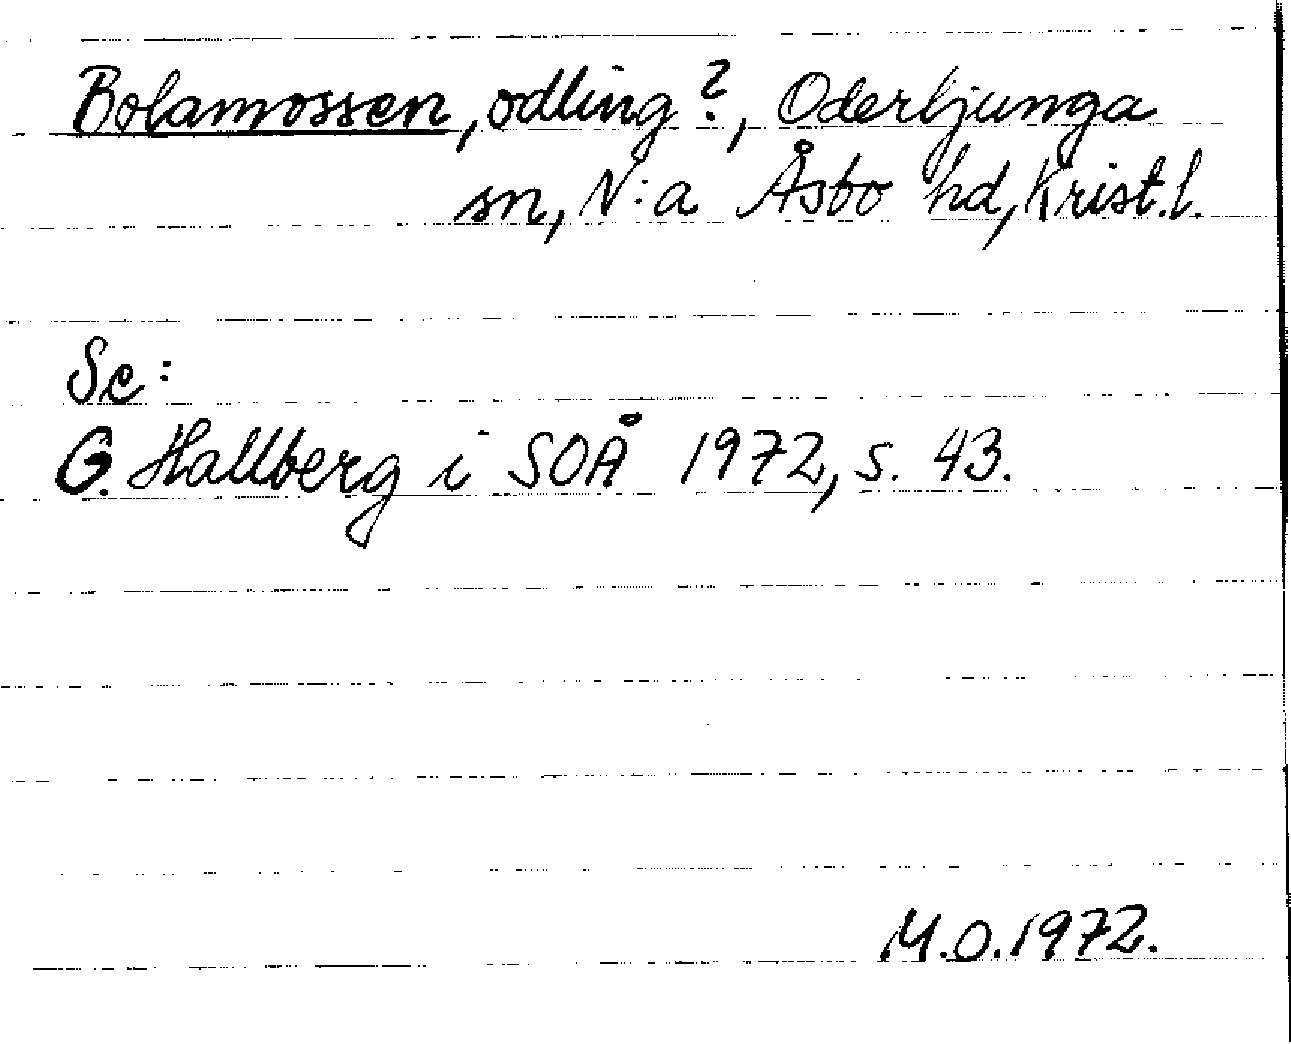 Bolamossen, odling?, Oderljunga
sn, N:a Åsbo hd, Krist.l.
Se:
G. Hallberg i SOÅ 1972, s. 43.
M.O. 1972.